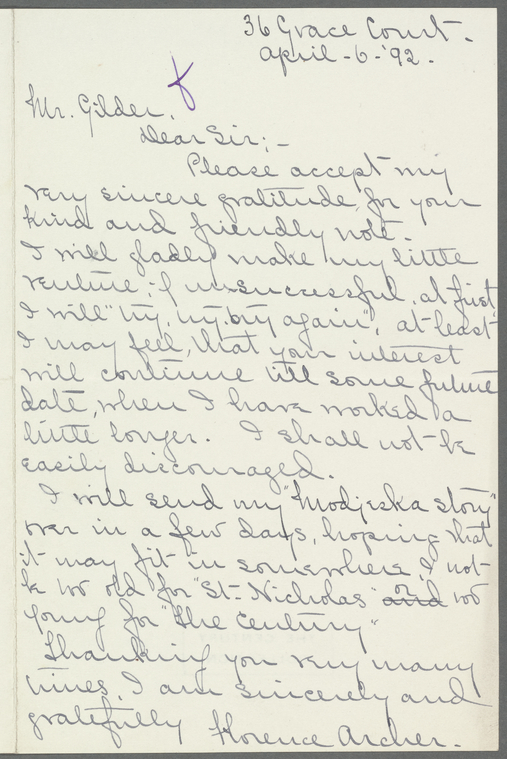 36 Grace Court.
April-6-'92.
Mr. Gilder.
Dear Sir;-
Please accept my
very sincere gratitude, for your
kind and friendly note.
I will gladly make my little
venture; if unsuccessful, at first
I will "try, try, try again", at-least
I may feel, that your interest
will continue till some future
date, when I have worked a
little longer. I shall not-be
easily discouraged.
I will send my "Modjeska story"
over in a few days, hoping that
it may fit in somewhere, if not
be too old for "St-Nicholas" and or too
young for "The Century"
Thanking you very many
times, I am sincerely and
gratefully Florence Archer.